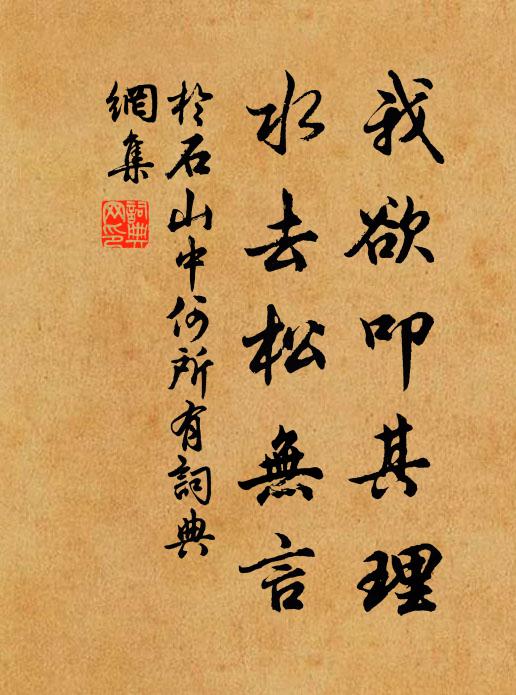 我欲叩其理
水去松無言
於石山中何所有詞典
網集
詞典
网印